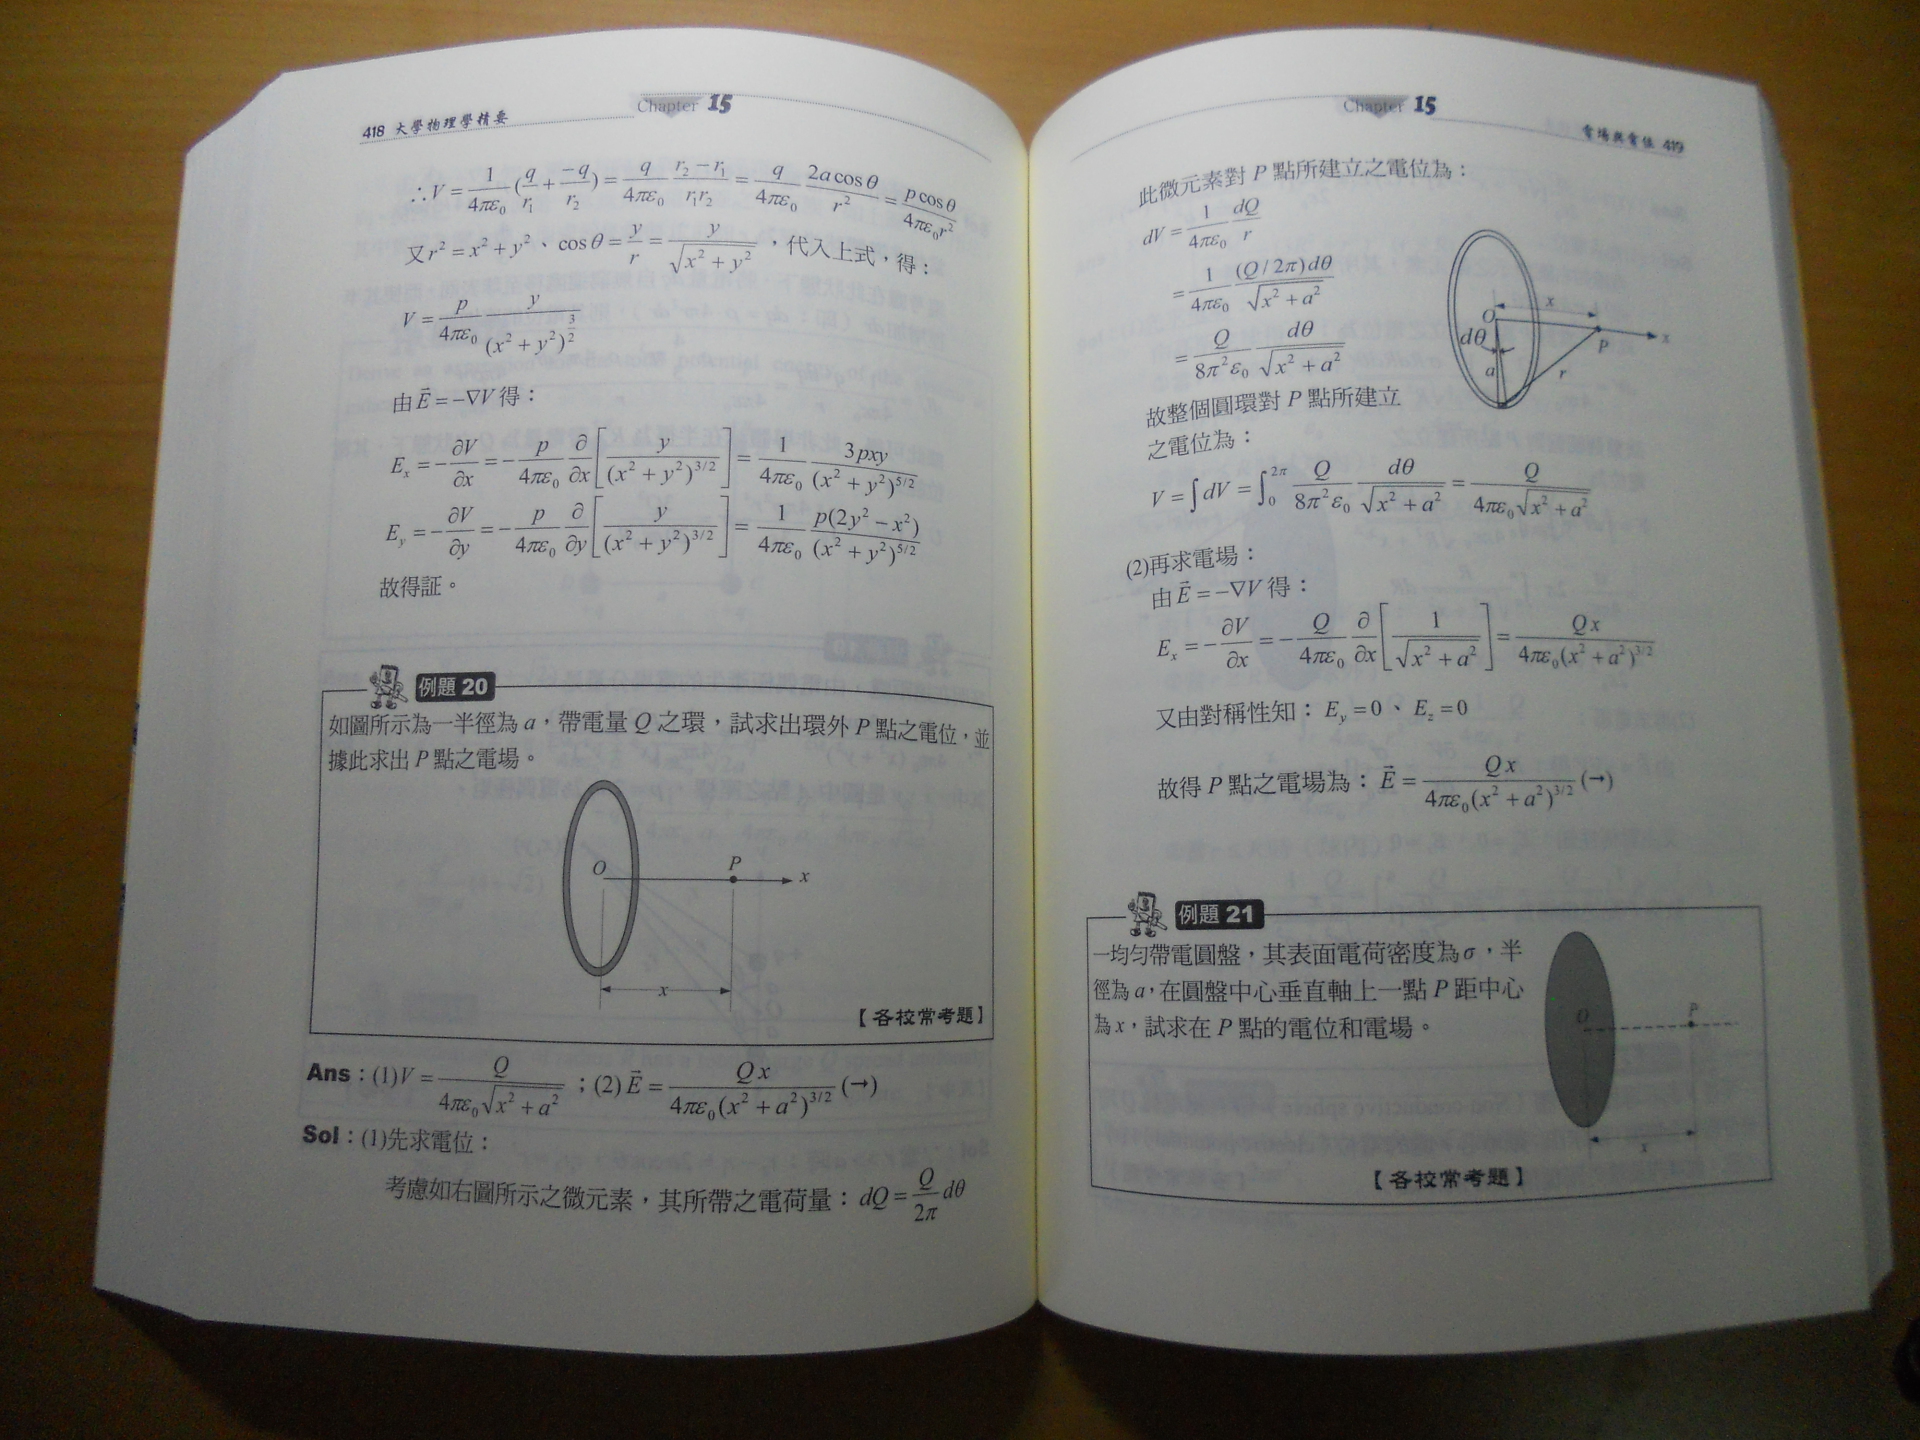 418 大學物理學精要
Chapter 15
∴V = 1/4πε₀ (q/r₁ + −q/r₂) = q/4πε₀ r₂−r₁/r₁r₂ = q/4πε₀ 2a cosθ/r² = p cosθ/4πε₀r²
又 r² = x² + y²、cosθ = y/r = y/√(x² + y²)，代入上式，得：
V = p/4πε₀ y/(x² + y²)^(3/2)
由 E⃗ = −∇V 得：
Eₓ = −∂V/∂x = −p/4πε₀ ∂/∂x [y/(x² + y²)^(3/2)] = 1/4πε₀ 3pxy/(x² + y²)^(5/2)
E_y = −∂V/∂y = −p/4πε₀ ∂/∂y [y/(x² + y²)^(3/2)] = 1/4πε₀ p(2y² − x²)/(x² + y²)^(5/2)
故得証。
例題 20
如圖所示為一半徑為 a，帶電量 Q 之環，試求出環外 P 點之電位，並
據此求出 P 點之電場。
O P x
x
【各校常考題】
Ans：(1) V = Q/4πε₀√(x² + a²)；(2) E⃗ = Qx/4πε₀(x² + a²)^(3/2) (→)
Sol：(1)先求電位：
考慮如右圖所示之微元素，其所帶之電荷量：dQ = Q/2π dθ
Chapter 15
電場與電位 419
此微元素對 P 點所建立之電位為：
dV = 1/4πε₀ dQ/r
= 1/4πε₀ (Q/2π)dθ/√(x² + a²)
= Q/8π²ε₀ dθ/√(x² + a²)
x
O
x
dθ
P
a
r
故整個圓環對 P 點所建立
之電位為：
V = ∫dV = ∫₀^2π Q/8π²ε₀ dθ/√(x² + a²) = Q/4πε₀√(x² + a²)
(2)再求電場：
由 E⃗ = −∇V 得：
Eₓ = −∂V/∂x = −Q/4πε₀ ∂/∂x [1/√(x² + a²)] = Qx/4πε₀(x² + a²)^(3/2)
又由對稱性知：E_y = 0、E_z = 0
故得 P 點之電場為：E⃗ = Qx/4πε₀(x² + a²)^(3/2) (→)
例題 21
一均勻帶電圓盤，其表面電荷密度為 σ，半
徑為 a，在圓盤中心垂直軸上一點 P 距中心
為 x，試求在 P 點的電位和電場。
O P
x
【各校常考題】